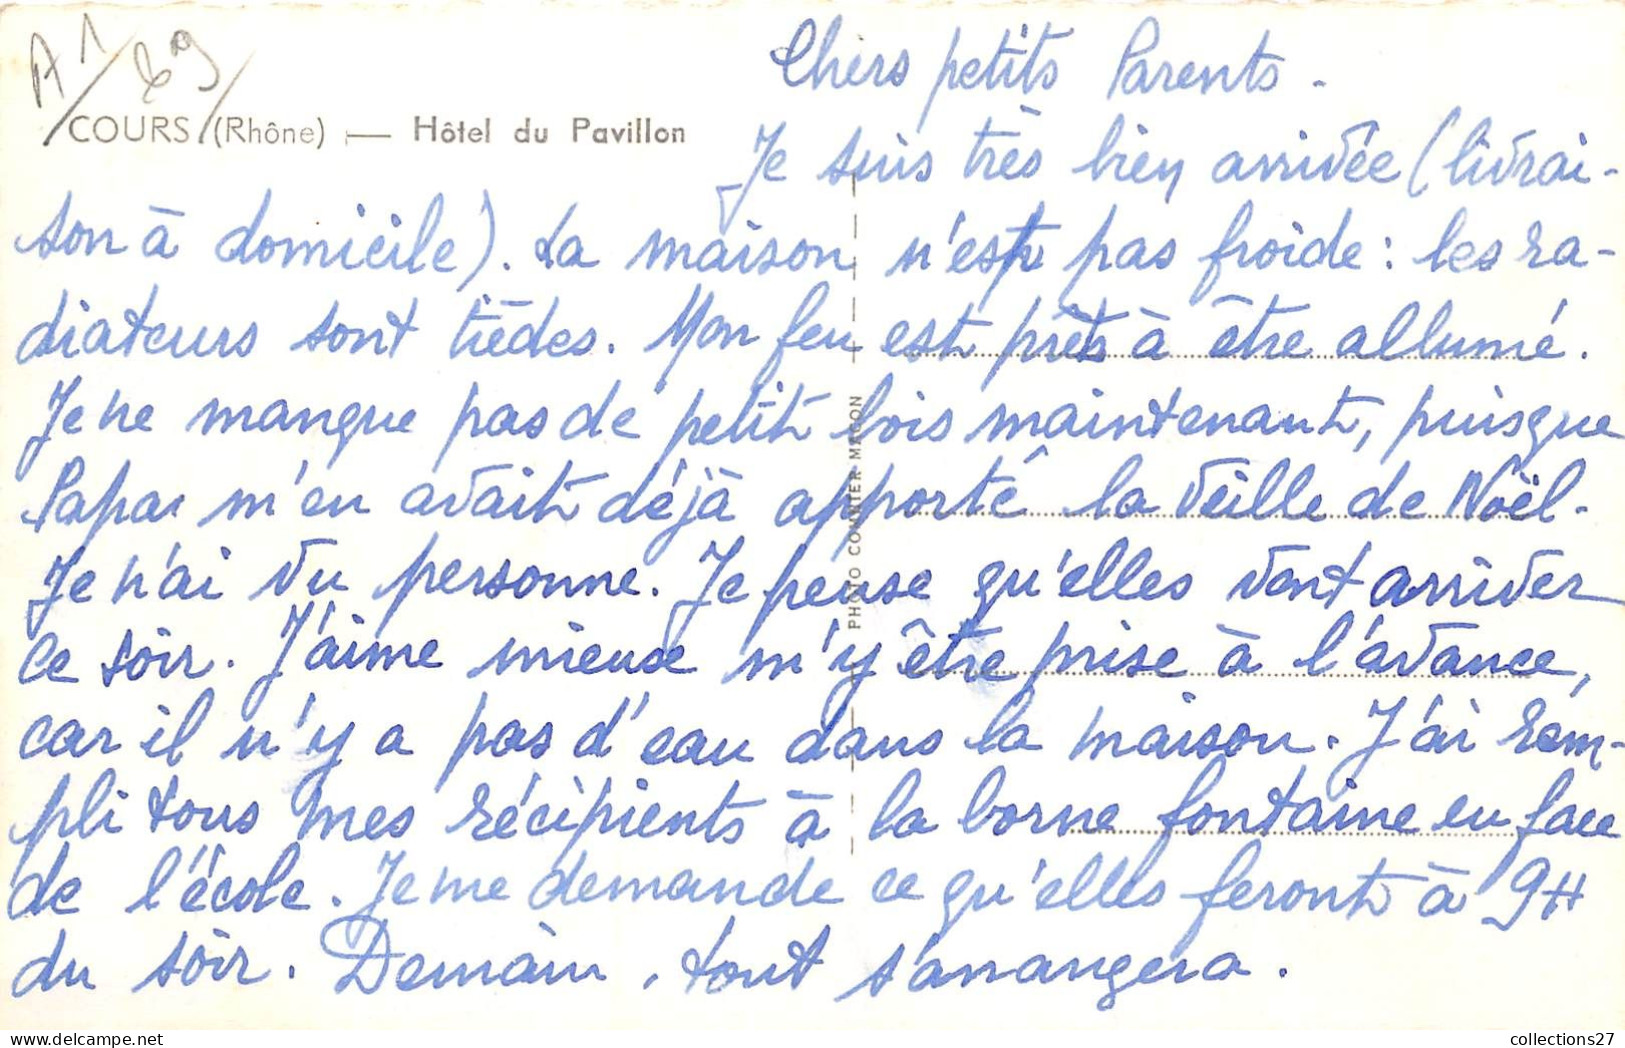 A1/69/
COURS (Rhône) — Hôtel du Pavillon
Chers petits Parents.
Je suis très bien arrivée (livrai-
son à domicile). La maison n'est pas froide : les ra-
diateurs sont tièdes. Mon feu est prêt à être allumé.
Je ne manque pas de petit bois maintenant, puisque
Papa m'en avait déjà apporté la veille de Noël.
Je n'ai vu personne. Je pense qu'elles vont arriver
ce soir. J'aime mieux m'y être prise à l'avance,
car il n'y a pas d'eau dans la maison. J'ai rem-
pli tous mes récipients à la borne fontaine en face
de l'école. Je me demande ce qu'elles feront à 9H
du soir. Demain, tout s'arrangera.
PHOTO COMBIER MACON
collections27